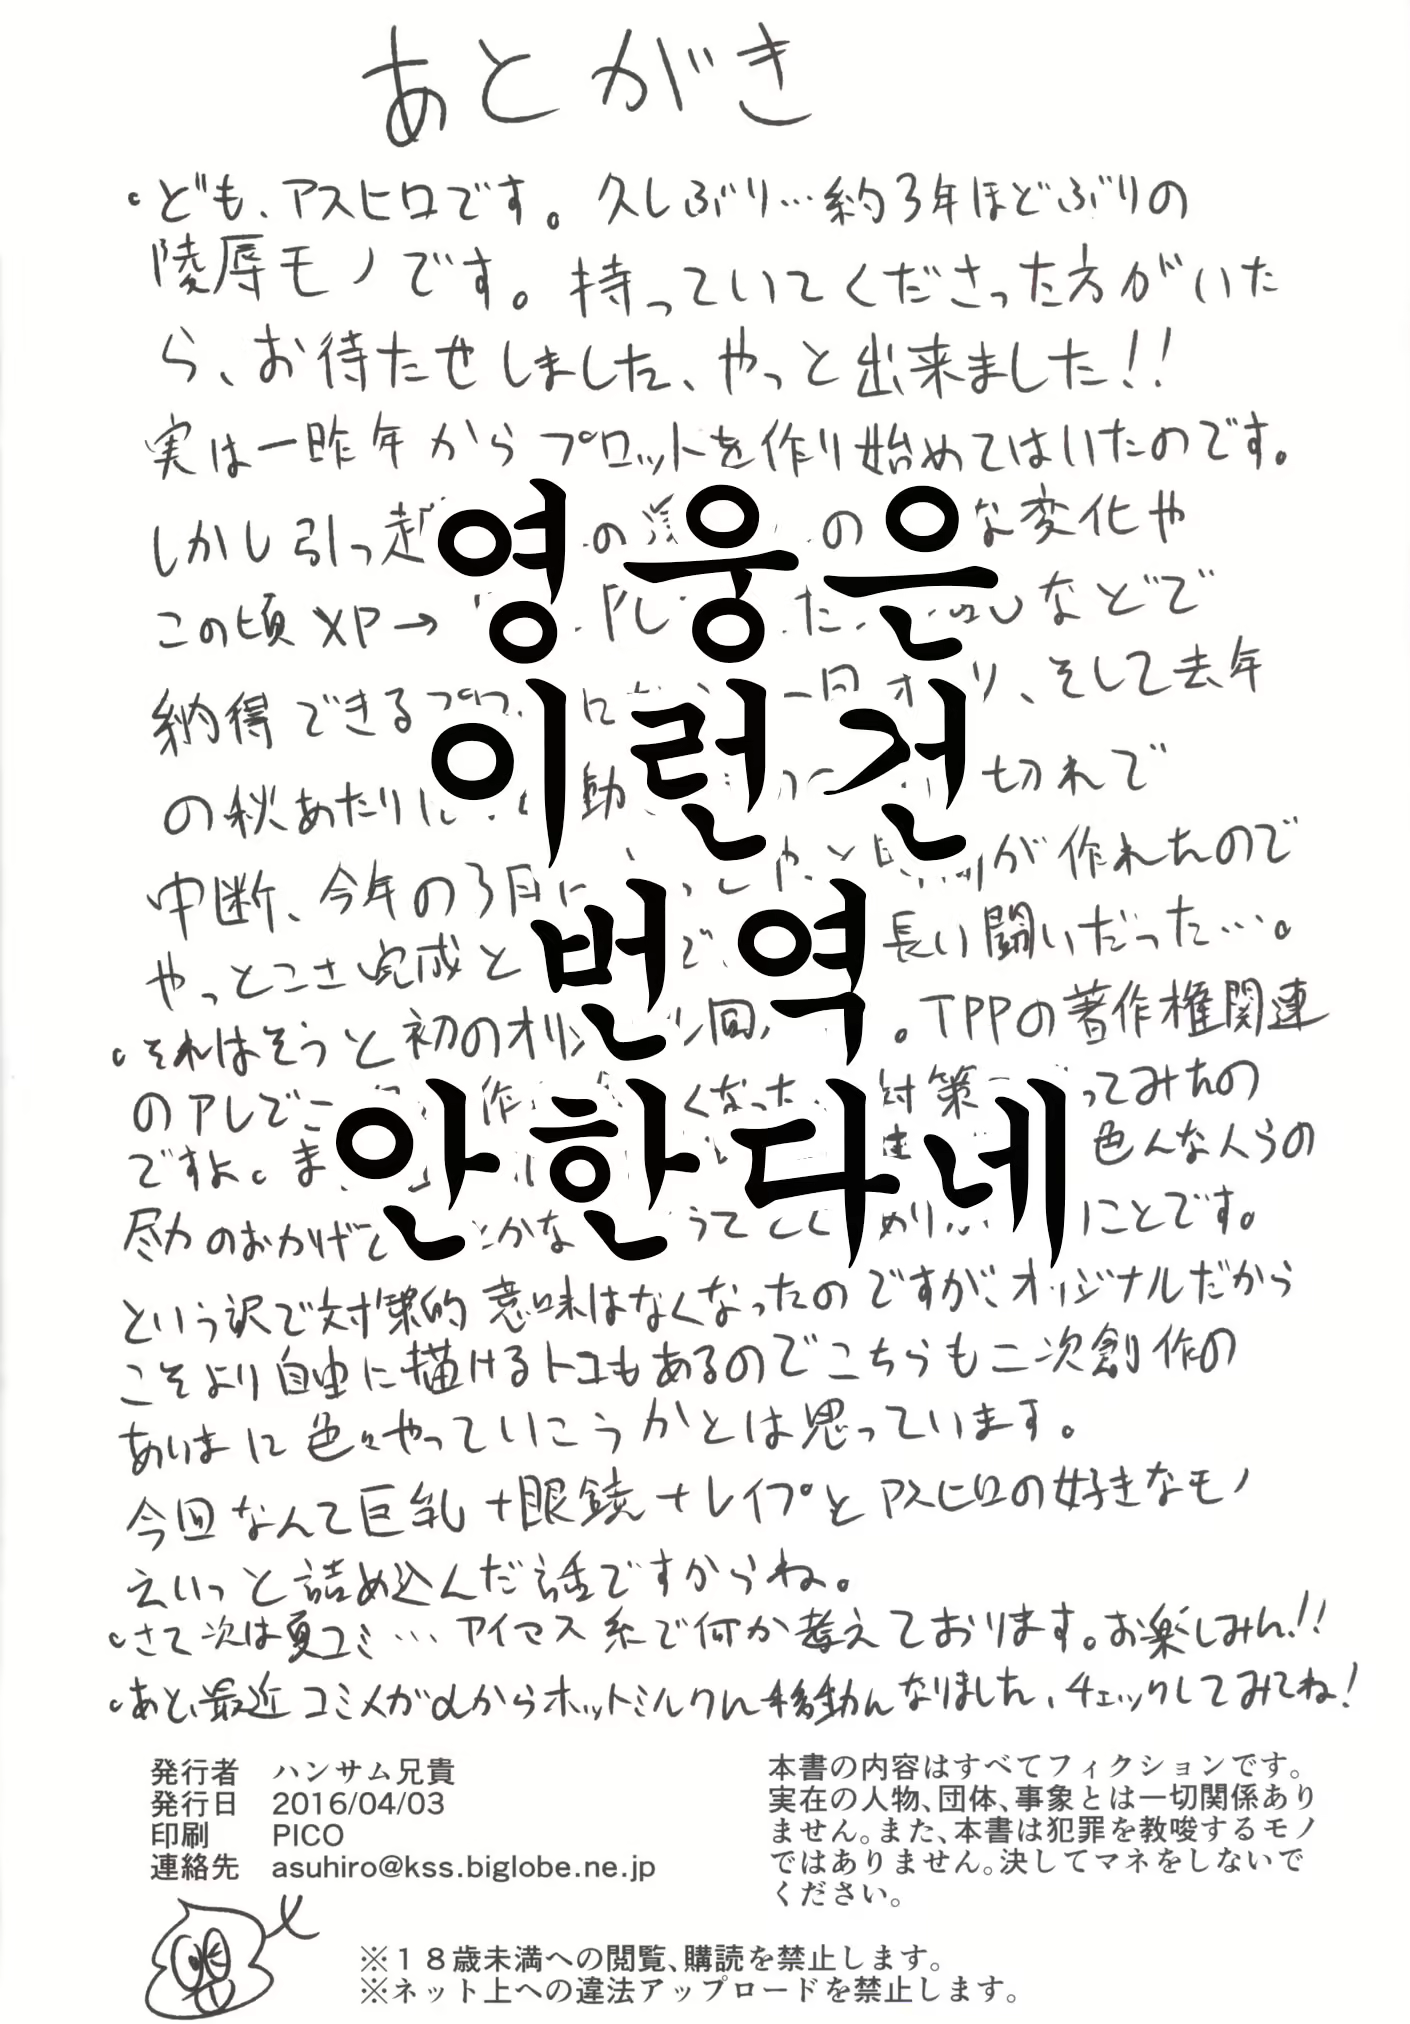 あとがき
・ども、アスヒロです。久しぶり…約3年ほどぶりの
陵辱モノです。持っていてくださった方がいた
ら、お待たせしました、やっと出来ました!!
実は一昨年からプロットを作り始めてはいたのです。
しかし引っ越 の の な変化や
この頃XP→ た などで
納得できるプロ に 一回 り、そして去年
の秋あたりに 動 切れで
中断、今年の3月に やっと が作れたので
やっとこさ完成と で 長い闘いだった…。
・それはそうと初のオリ 回 。TPPの著作権関連
のアレでこ 作 くなった 対策 ってみたの
ですよ。ま 色んな人らの
尽力のおかげ とかな うて めり にことです。
という訳で対策的意味はなくなったのですが、オリジナルだから
こそより自由に描けるトコもあるのでこちらも二次創作の
あいまに色々やっていこうかとは思っています。
今回なんて巨乳+眼鏡+レイプとアスヒロの好きなモノ
えいっと詰め込んだ話ですからね。
・さて次は夏コミ…アイマス系で何か考えております。お楽しみん!!
・あと、最近コミメガαからホットミルクに移動んなりました、チェックしてみてね!
영웅은
이런건
번역
안한다네
発行者 ハンサム兄貴
発行日 2016/04/03
印刷 PICO
連絡先 asuhiro@kss.biglobe.ne.jp
本書の内容はすべてフィクションです。
実在の人物、団体、事象とは一切関係あり
ません。また、本書は犯罪を教唆するモノ
ではありません。決してマネをしないで
ください。
※18歳未満への閲覧、購読を禁止します。
※ネット上への違法アップロードを禁止します。